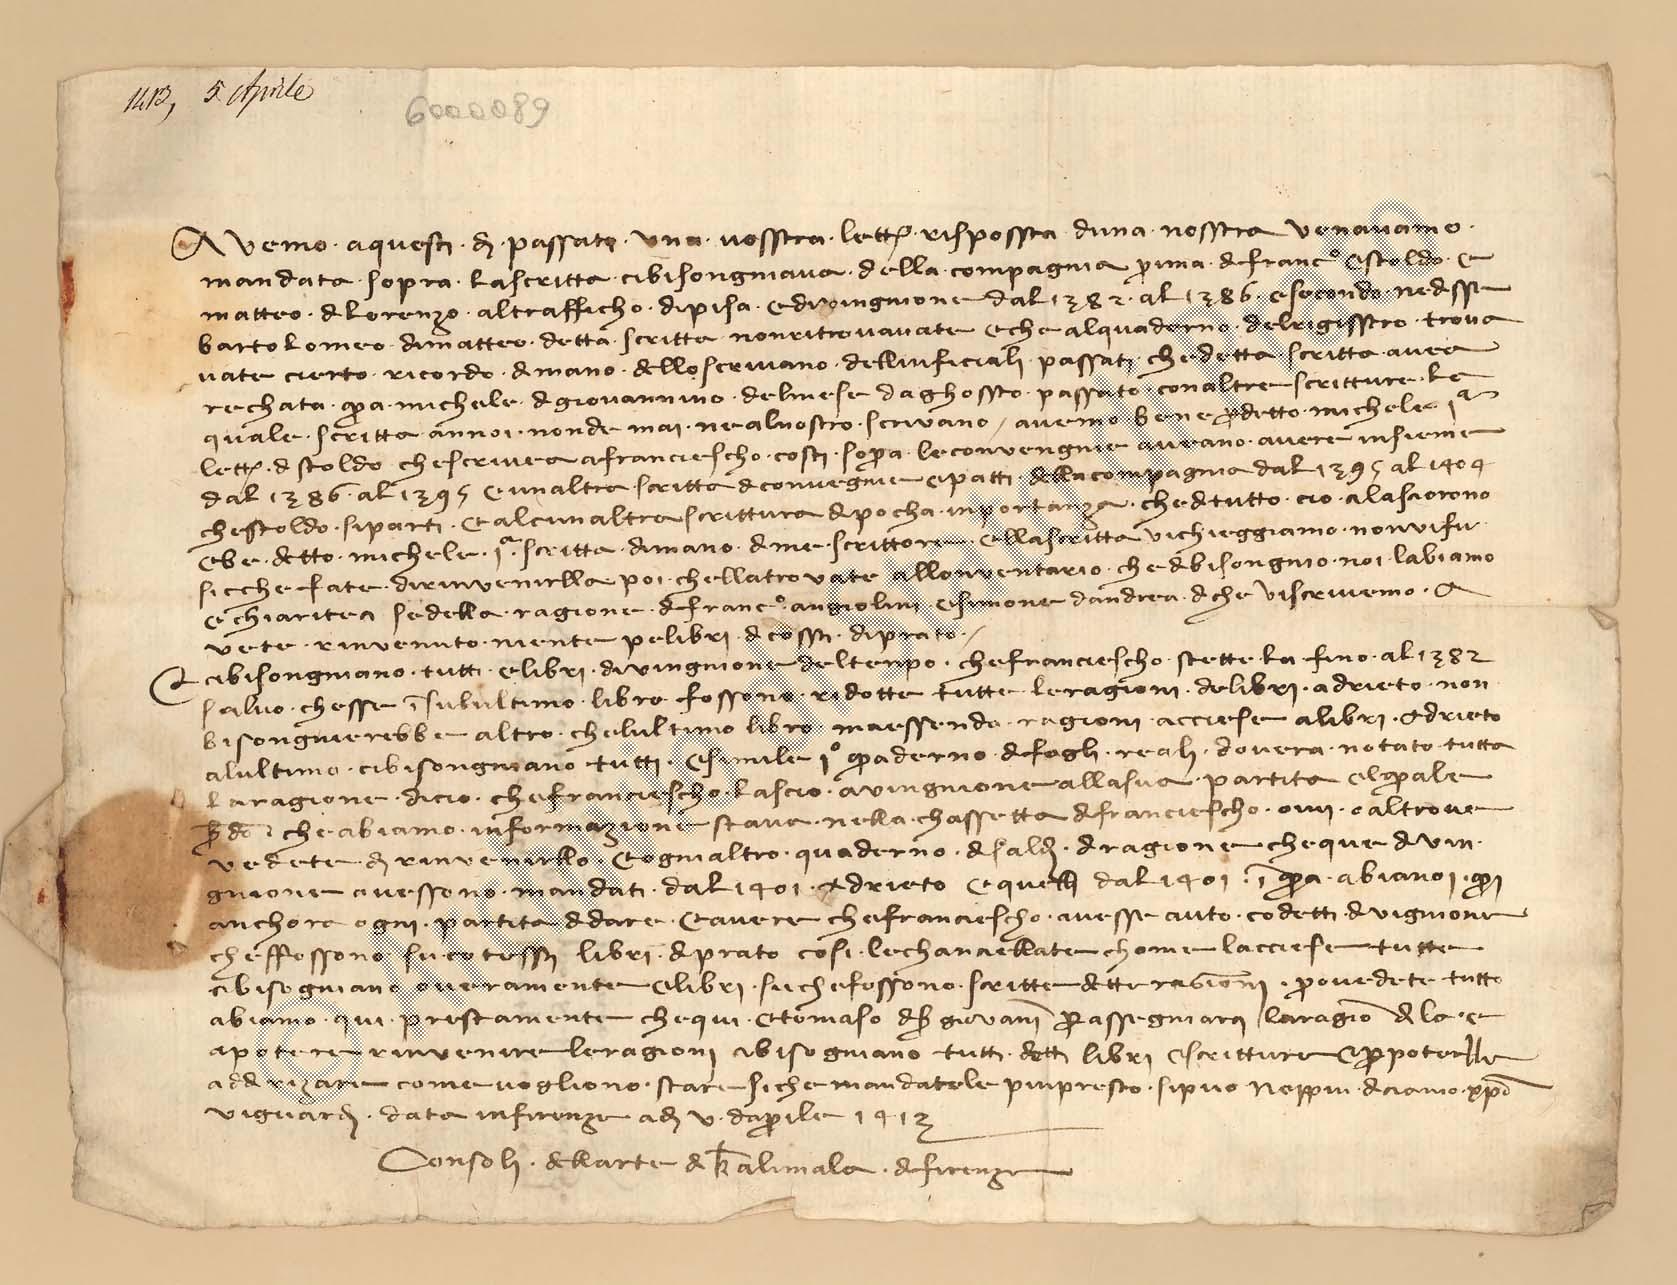 1413, 5 Aprile
6000089
Avemo · aquesti · dì · passati · una · vosstra · lett · rispossta · duna · nosstra · venavamo ·
mandata · sopra · lascritta · cibisongniava · della · compagnia · prima · di franc° · e stoldo · e
matteo · di lorenzo · altrafficho · dipisa · edivingnione dal 1382 · al 1386 · esecondo · nedisse
bartolomeo · dimatteo · detta · scritta · nonritrovavate · echealquaderno · delrigisstro · trova
vate cierto · ricordo · dimano · dello scrivano · dellinficiali · passati · chedetta · scritta · avea
rechata · qua · michele · di giovannino · delmese daghossto · passato · conaltre scritture · la
quale · scritta annoi · nonde mai · nealnostro · scrivano / avemo · bene dodetto · michele 1a
lett · di stoldo che scrivea afranciescho · costi · sopra · leconvengnie aveano · avere insieme
dal 1386 · al 1395 eunaltra scritta di convegnie epatti · della compagnia dal 1395 al 1404
chestoldo · siparti · ealcunaltra scrittura di pocha · inportanza · cheditutto · cio · alasciorono
ebe · detto · michele · 1a · scritta · dimano · di me · scrittore · ellascritta vichieggiamo · nonvifu ·
sicche fate · dirinvenirlla poi · chellatrovate allonventario · chedibisongnio · noi · labiamo
echiaritea sedella · ragione · di franc° · angiolini · esimone dandrea · diche viscrivemo · A
vete · rinvenuto · niente pelibri · di cossti · diprato · /
E cibisongniano · tutti · elibri · divingnione deltenpo · chefranciescho · stette la · fino · al 1382
salvo · chesse i subultimo · libro fossono · ridotte tutte leragioni · delibri · adrieto · non
bisongnierebbe altro · chelultimo libro maessendo · ragioni · acciese alibri · adrieto
alultimo · cibisongniano tutti · esimile 1° quaderno · di fogli · reali · dovera · notato tutta
laragione · dicio · chefranciescho · lascio · avingnione allasua · partita elquale
che abiamo · informazione stava · nella · chassetta di franciescho · ovvi · oaltrove
vedete · di rinvenirllo · eognialtro · quaderno · di saldi · di ragione cheque divin
gnione avessono · mandati · dal 1401 · adrieto equelli dal 1401 · i qua · abianoi · qui
anchora ogni · partita didare · eavere chefranciescho · avesse auto · codetti di vignione
cheffossono · su cotessti libri · di prato cosi · lechanciellate chome lacciese tutte
cibisogniano overamente elibri · suchefossono · scritte dette ragioni · provedete tutto
abiamo · qui · prestamente chequi · etomaso giovani rassegniarci laragio di la · e
apotere rinvenire leragioni cibisogniano tutti · detti libri escritture epropoterlle
addirizare come vogliono · stare siche mandatele piupresto · sipuo Neppiu · diciamo · xpo
viguardi · data infirenze adi v · daprile 1413
Consoli · dellarte di kalimala · di firenze